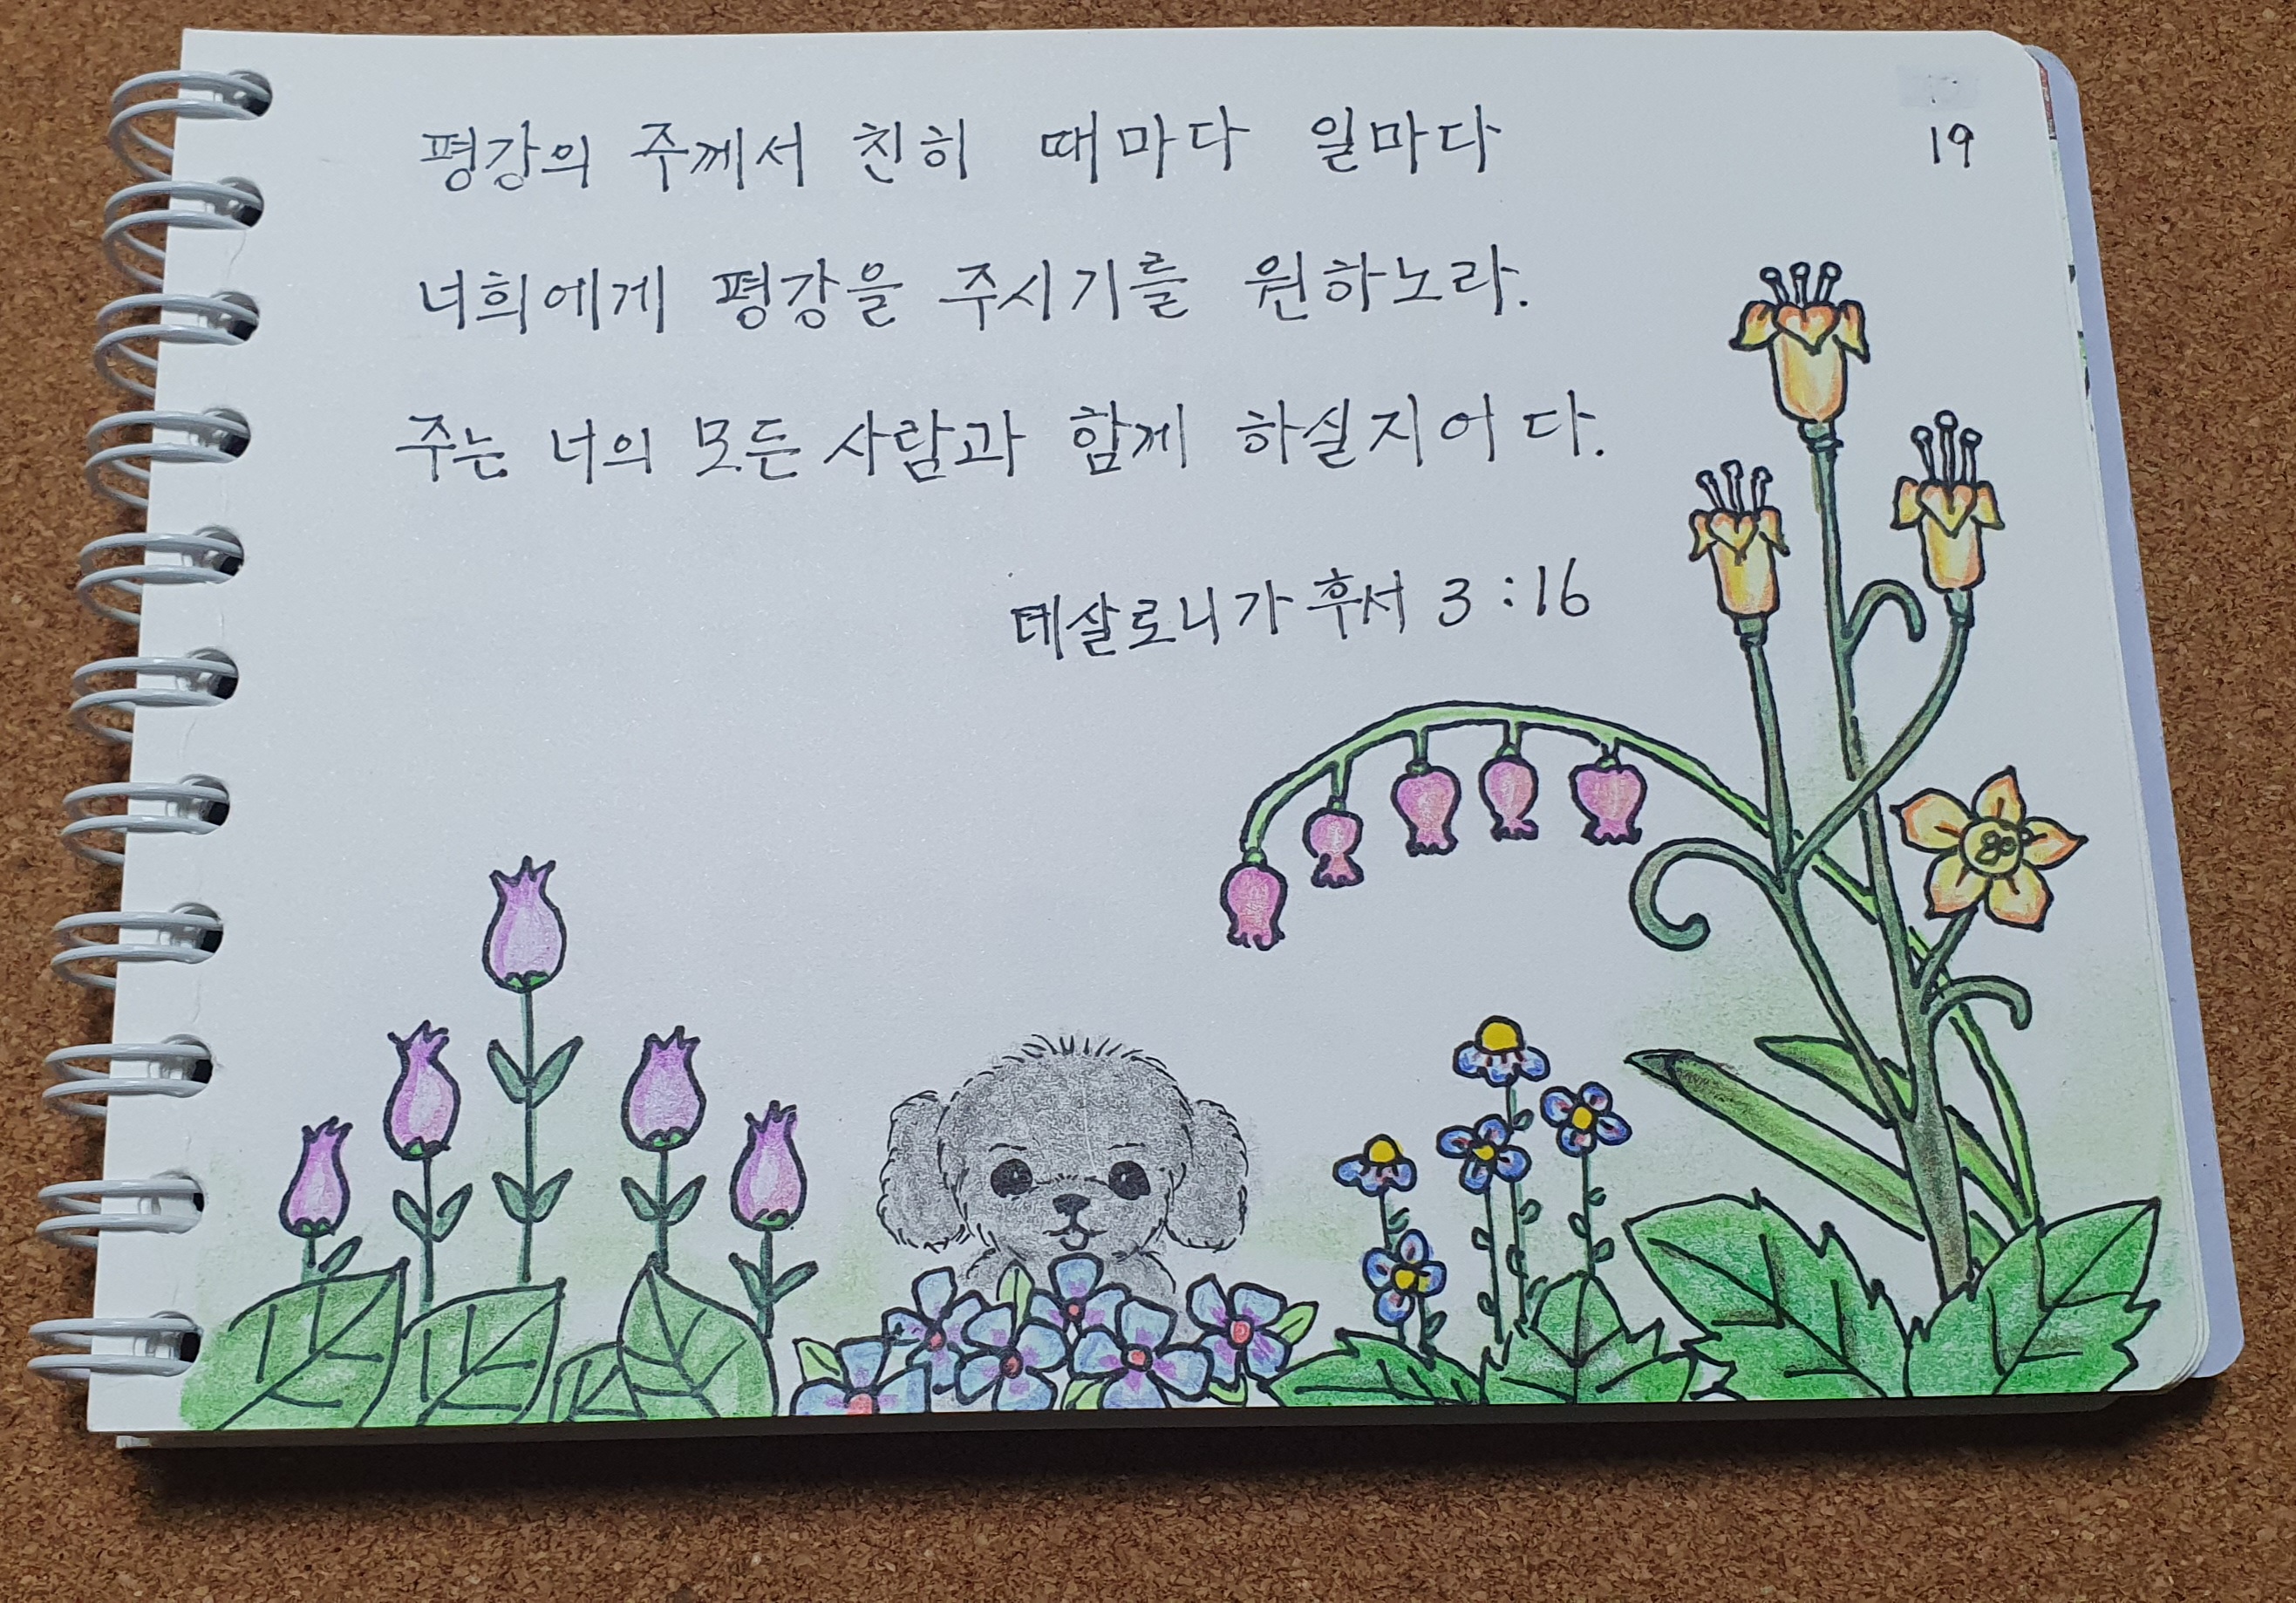 평강의 주께서 친히 때마다 일마다
19
너희에게 평강을 주시기를 원하노라.
주는 너의 모든 사람과 함께 하실지어다.
데살로니가 후서 3:16